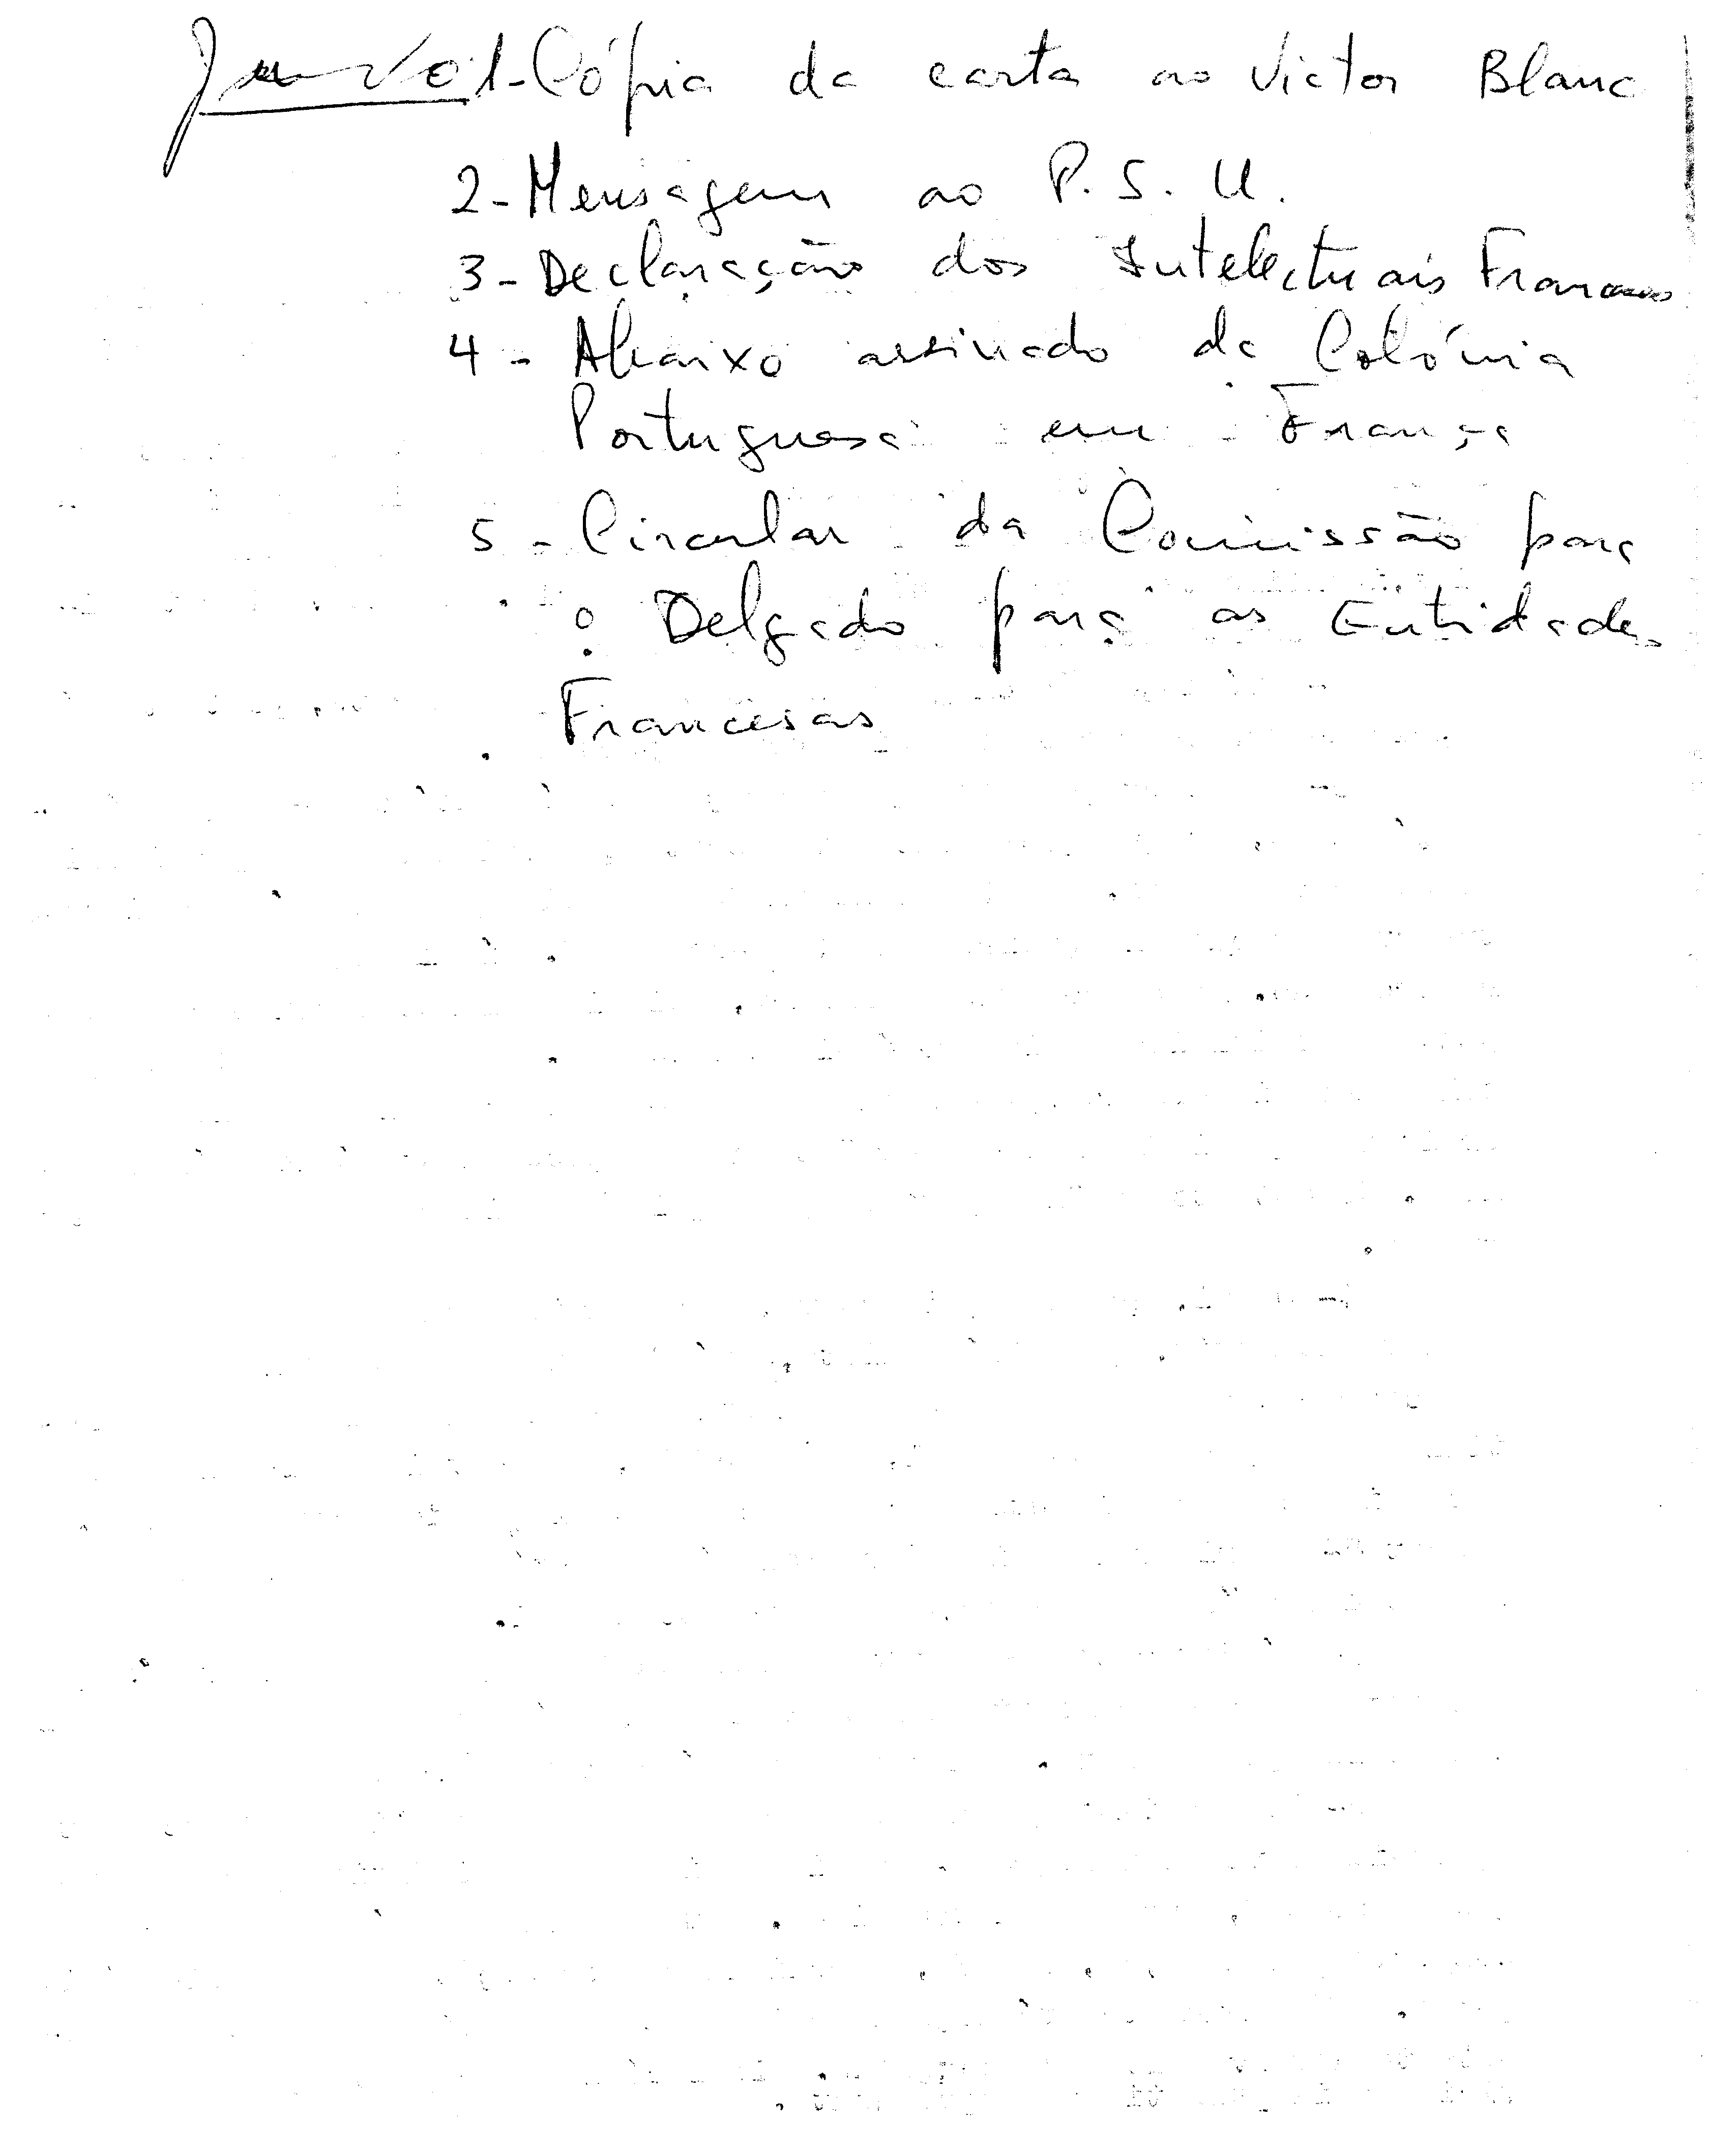 1-Cópia da carta ao Victor Blanc
2-Mensagem ao P.S.U.
3-Declaração dos Intelectuais Franceses
4-Abaixo assinado da Colónia
Portuguesa em França
5-Circular da Comissão para
o Delgado para as Entidades
Francesas